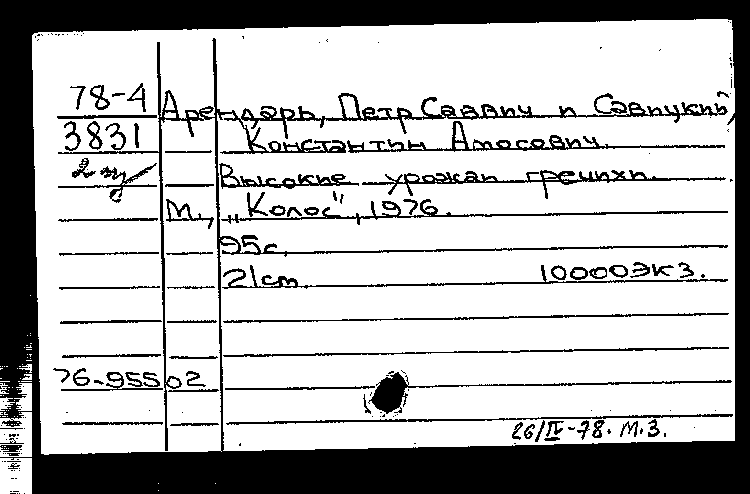 78-4 Арендарь, Петр Саввич и Савицкий,
3831 Константин Амосович.
2
Высокие урожаи гречихи.
М., „Колос", 1976.
95с.
21см. 10000экз.
76-95502
26/IV-78. М.З.